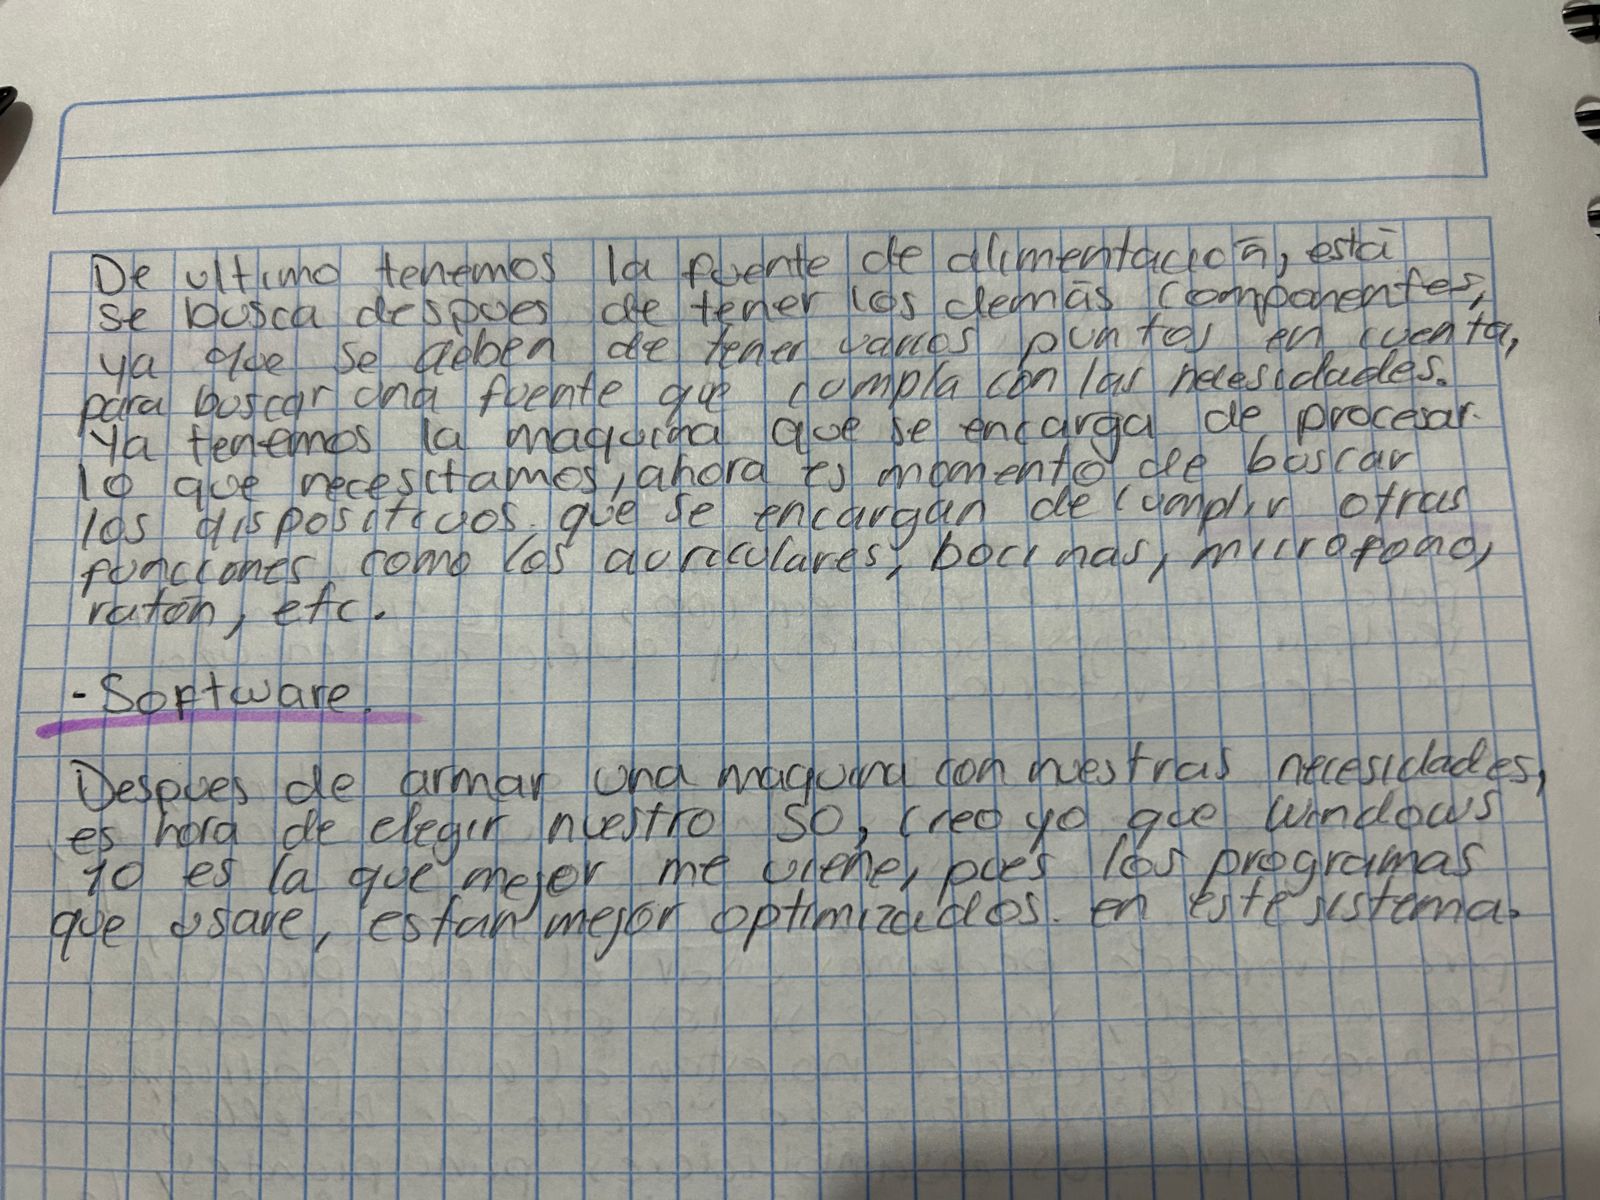 De ultimo tenemos la fuente de alimentación, está
se busca despues de tener los demás componentes,
ya que se deben de tener varios puntos en cuenta,
para buscar una fuente que cumpla con las necesidades.
Ya tenemos la maquina que se encarga de procesar
lo que necesitamos, ahora es momento de buscar
los dispositivos que se encargan de cumplir otras
funciones como los auriculares, bocinas, microfono,
ratón, etc.
- Software.
Despues de armar una maquina con nuestras necesidades,
es hora de elegir nuestro SO, creo yo que windows
10 es la que mejor me viene, pues los programas
que usare, estan mejor optimizados en este sistema.